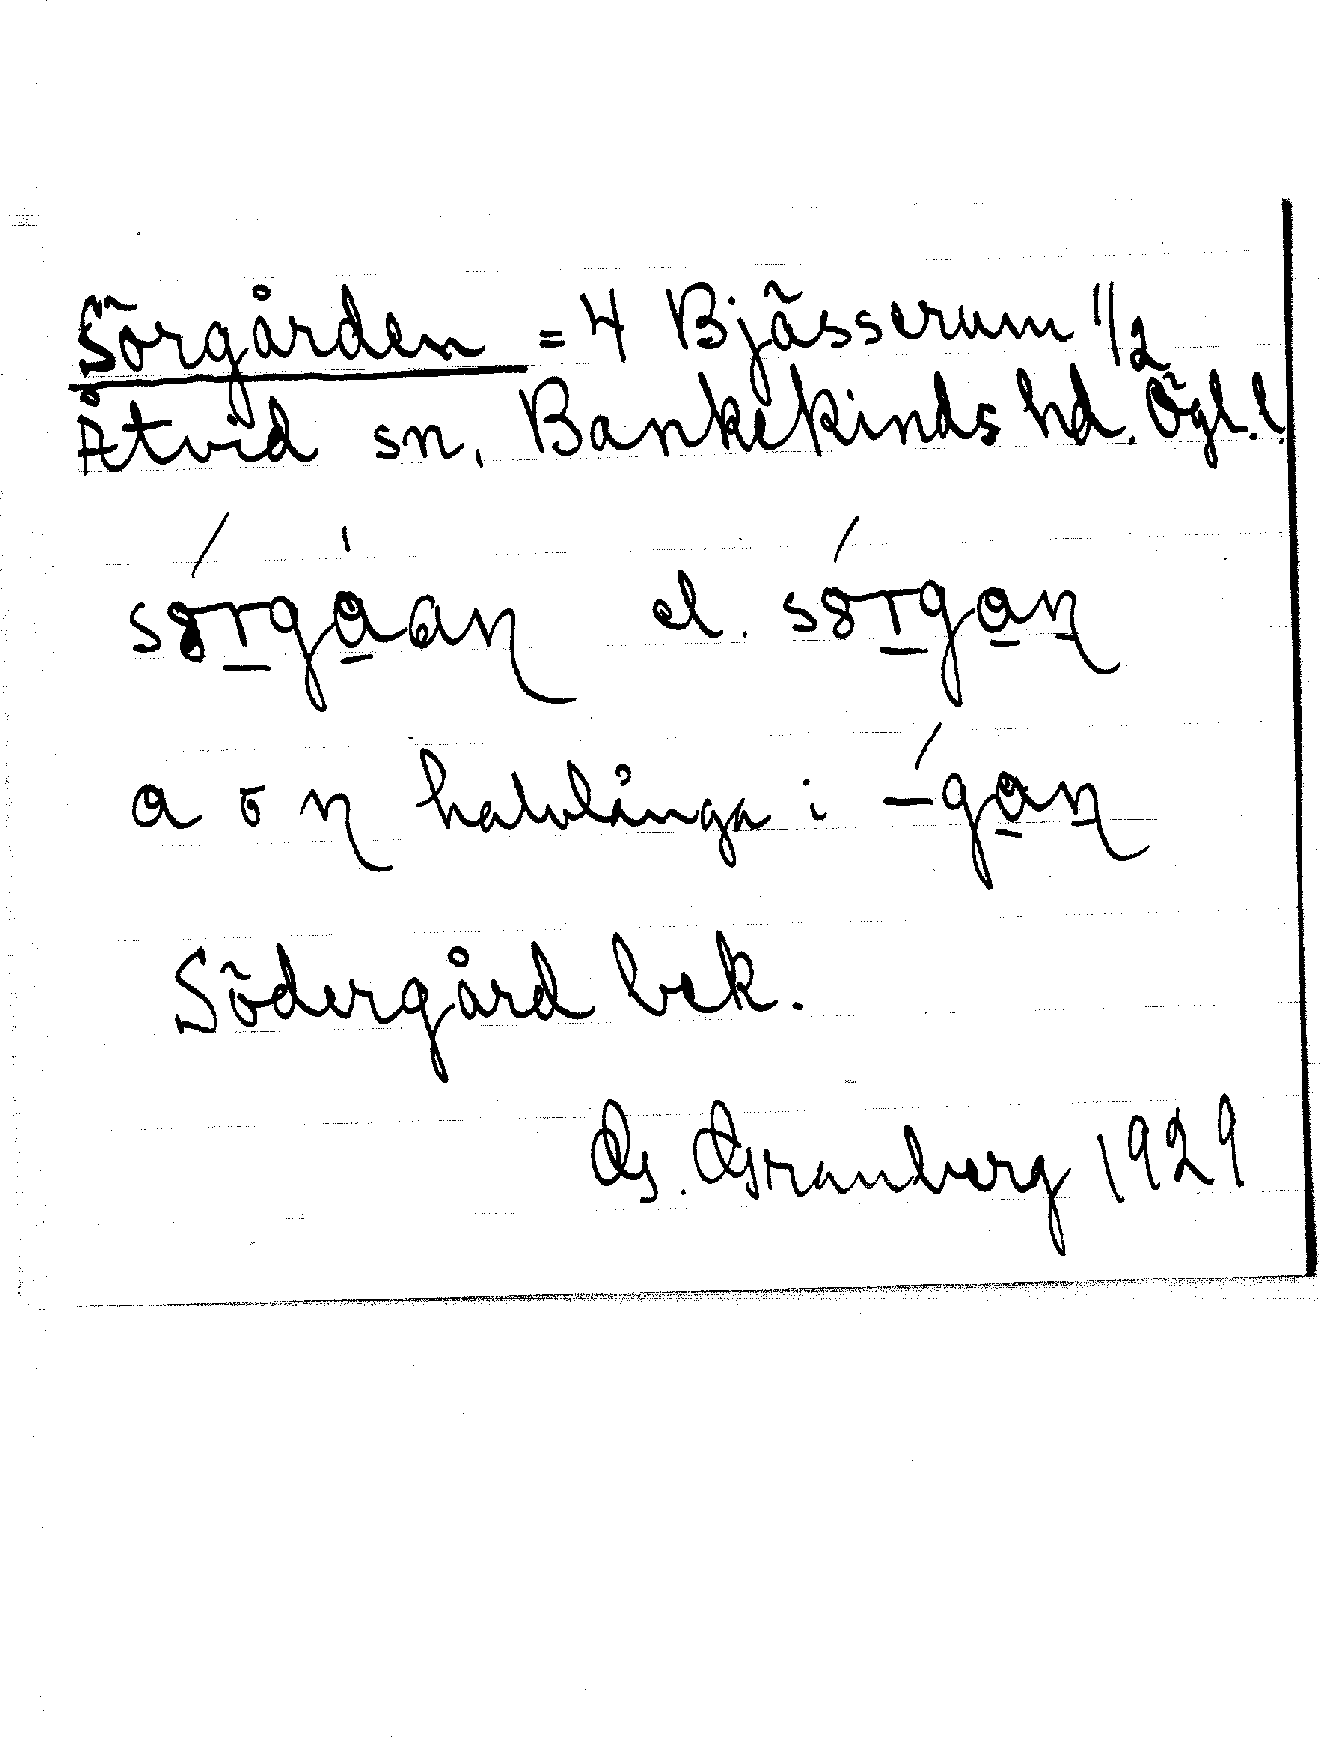 Sörgården = 4 Bjässerum 1/2
Åtvid sn, Bankekinds hd. Ögl.l.
el.
halvlånga i
Södergård bek.
G. Granberg 1929